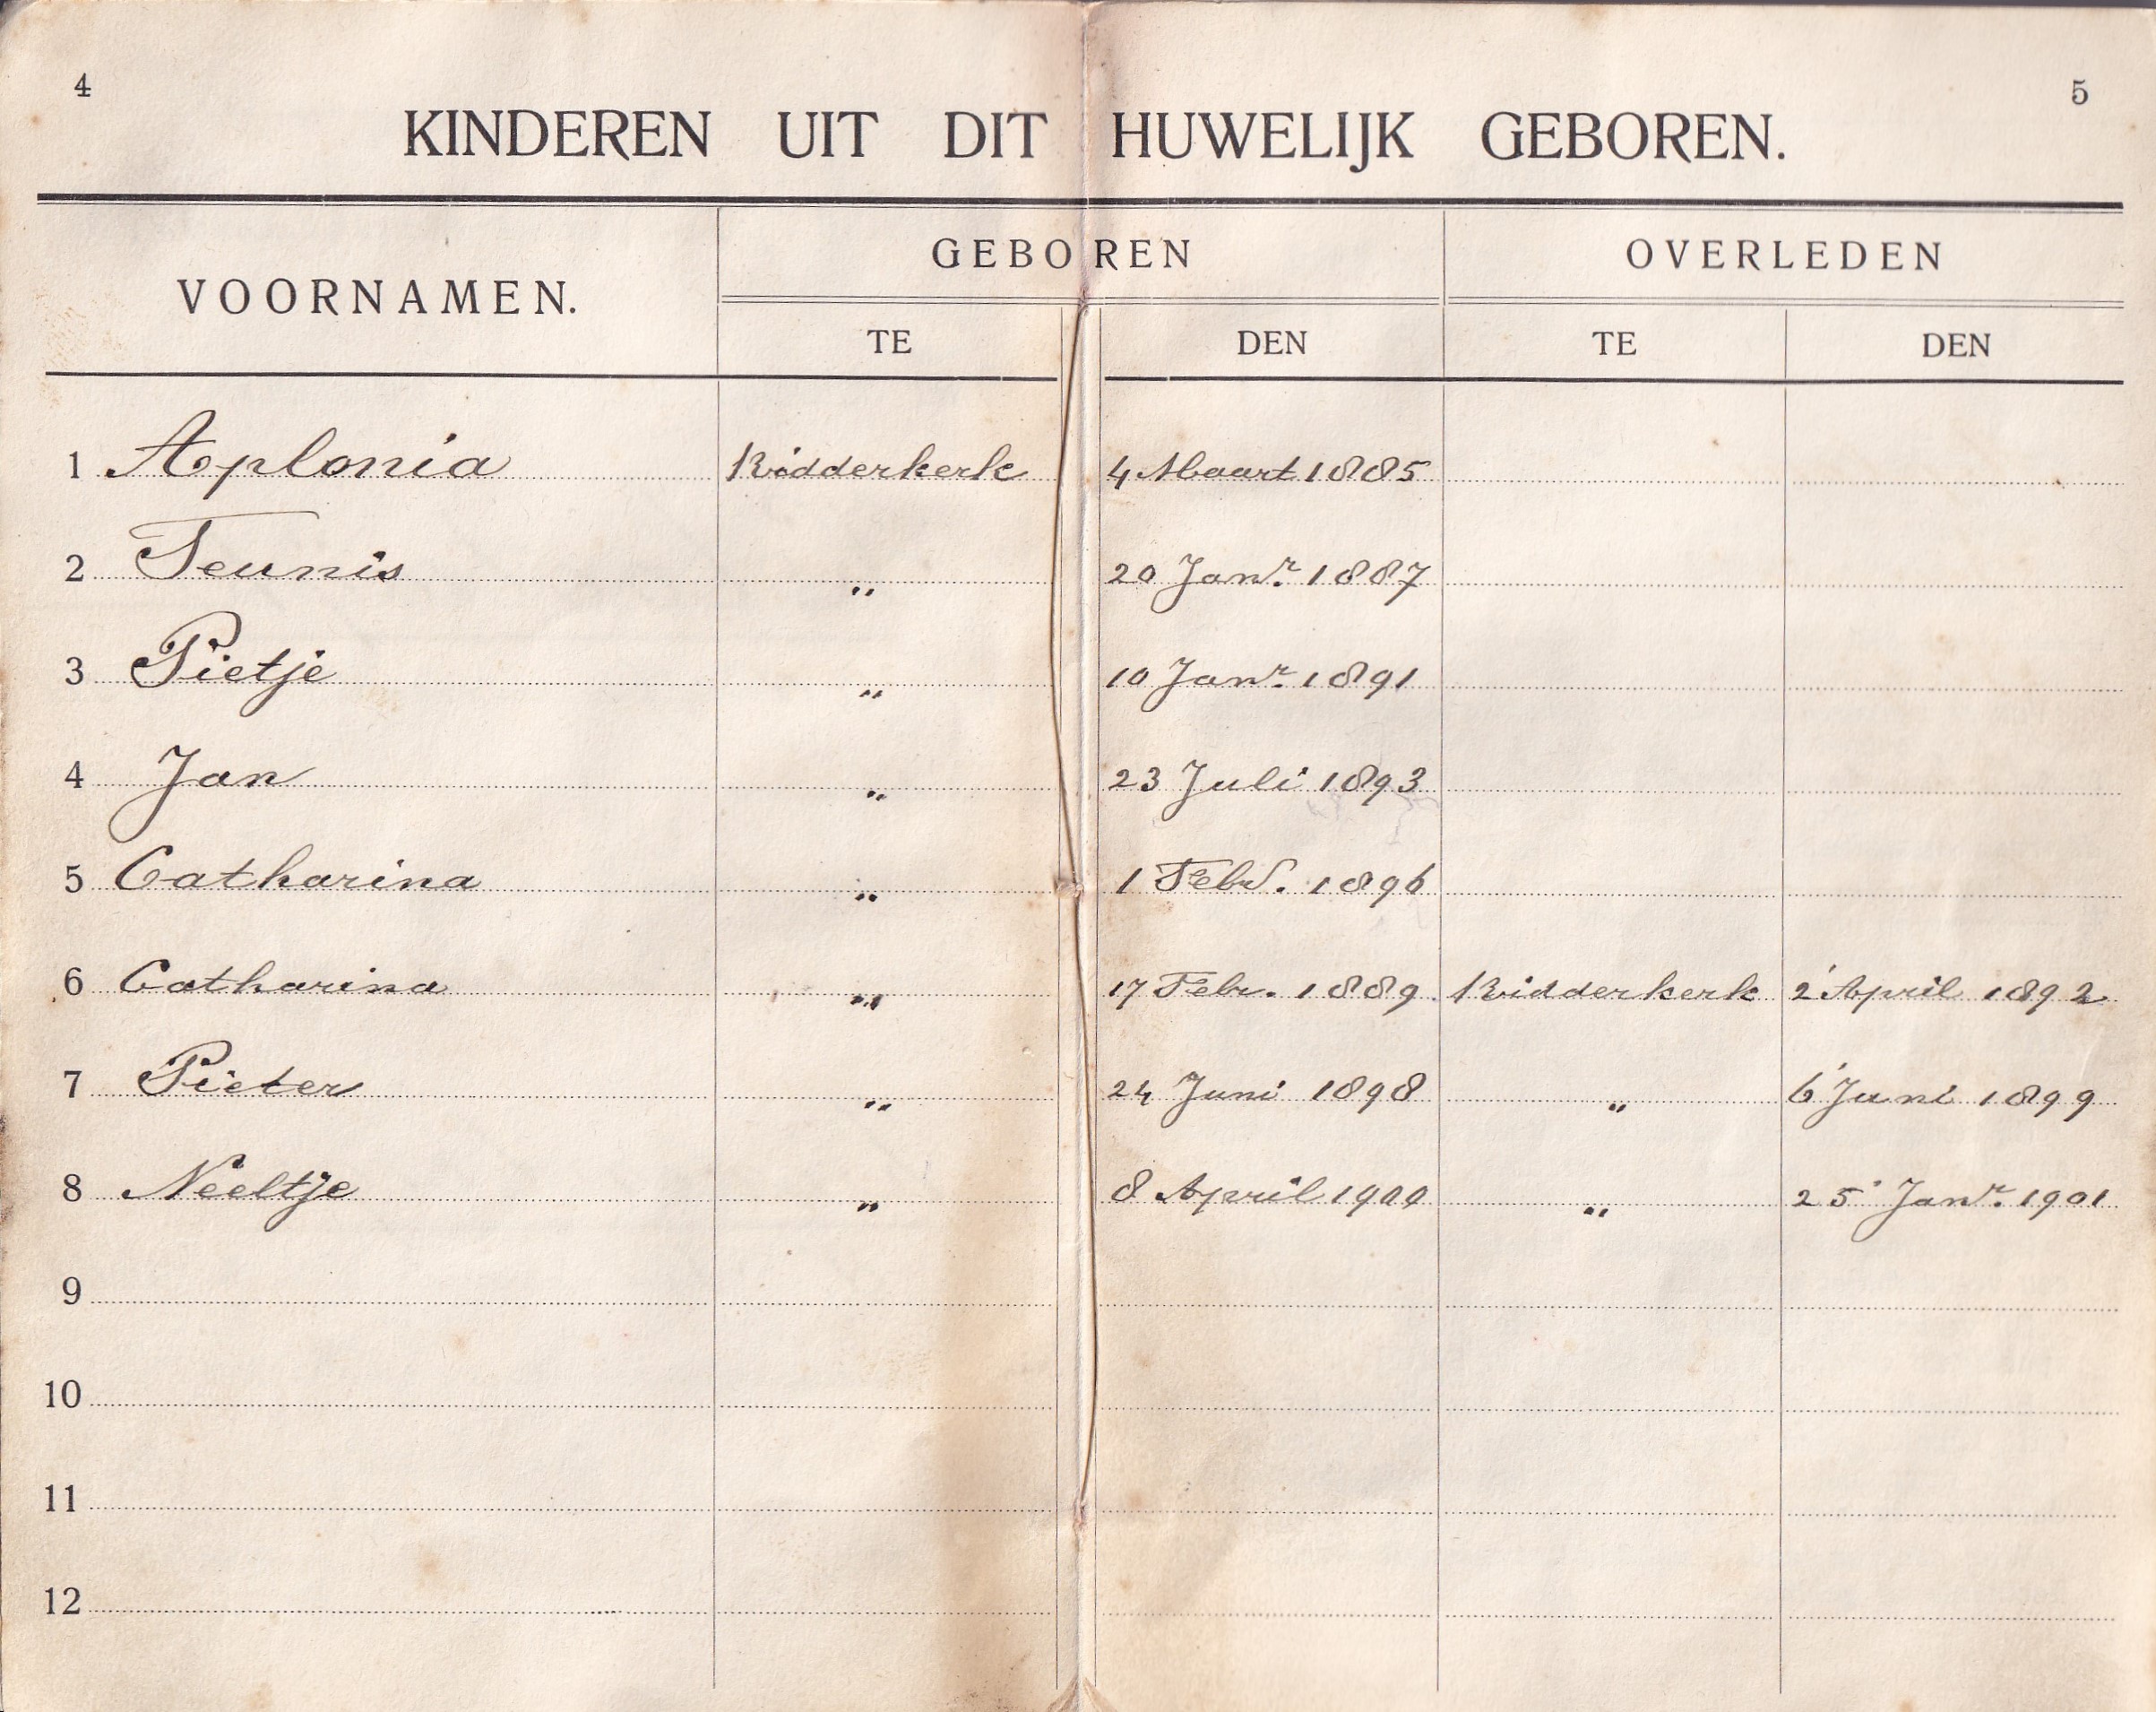 4 5
KINDEREN UIT DIT HUWELIJK GEBOREN.
VOORNAMEN. GEBOREN OVERLEDEN
TE DEN TE DEN
1 Aplonia Ridderkerk 4 Maart 1885
2 Teunis „ 20 Janr. 1887
3 Pietje „ 10 Janr. 1891
4 Jan „ 23 Juli 1893
5 Catharina „ 1 Febr. 1896
6 Catharina „ 17 Febr. 1889 Ridderkerk 2 April 1892
7 Pieter „ 24 Juni 1898 „ 6 Juni 1899
8 Neeltje „ 8 April 1900 „ 25 Janr. 1901
9
10
11
12